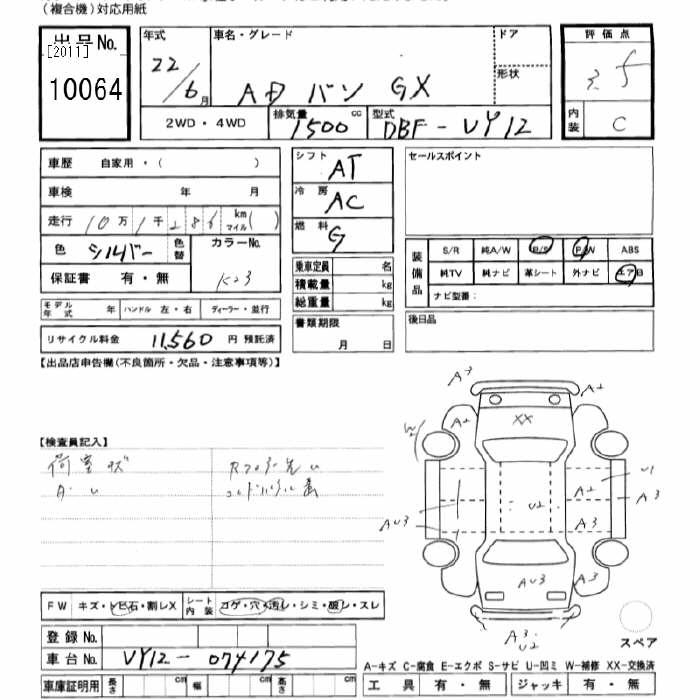 (複合機)対応用紙
出品No.
[2011]
10064
年式
22/6月
車名・グレード
ADバン GX
ドア
形状
2WD・4WD
排気量
1500cc
型式
DBF-VY12
評価点
3.5
内装
C
車歴 自家用・( )
車検 年 月
走行 10万1千286 km マイル( )
色 シルバー 色替
カラーNo.
K23
保証書 有・無
モデル年式 年 ハンドル 左・右 ディーラー・並行
リサイクル料金 11,560 円 預託済
シフト
AT
冷房
AC
燃料
G
乗車定員 名
積載量 kg
総重量 kg
書類期限
月 日
セールスポイント
装備品
S/R 純A/W P/S P/W ABS
純TV 純ナビ 革シート 外ナビ エアB
ナビ型番:
後日品
【出品店申告欄(不良箇所・欠品・注意事項等)】
【検査員記入】
荷室
FW キズ・トビ石・割レX シート内装 コゲ・穴・汚レ・シミ・破レ・スレ
登録No.
車台No. VY12-074175
車庫証明用 長さ cm 幅 cm 高さ cm
A3
A2
A2
XX
W2
U1
A2
A3
U2
AU3
A3
AU3
A3
A3
U2
スペア
A-キズ C-腐食 E-エクボ S-サビ U-凹ミ W-補修 XX-交換済
工具 有・無 ジャッキ 有・無